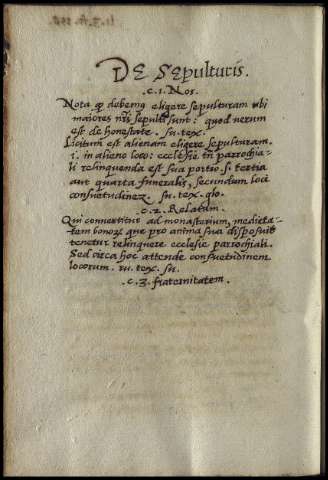 DE SEPulturis.
.c.1. Nos.
Nota q debemus eligere sepulturam ubi
maiores nri sepulti sunt: quod uerum
est de honestate. su. tex.
Licitum est alienam eligere sepulturam.
i. in alieno loco: ecclesie tn parrochia-
li relinquenda est sua portio .s. tertia
aut quarta funeralis, secundum loci
consuetudinez. su. tex. glo.
.c.2. Relatum.
Qui conuertitur ad monasterium, medieta-
tem bonorz que pro anima sua disposuit
tenetur relinquere ecclesie parrochiali.
Sed circa hoc attende consuetudinem
locorum. su. tex. su.
.c.3. fraternitatem.